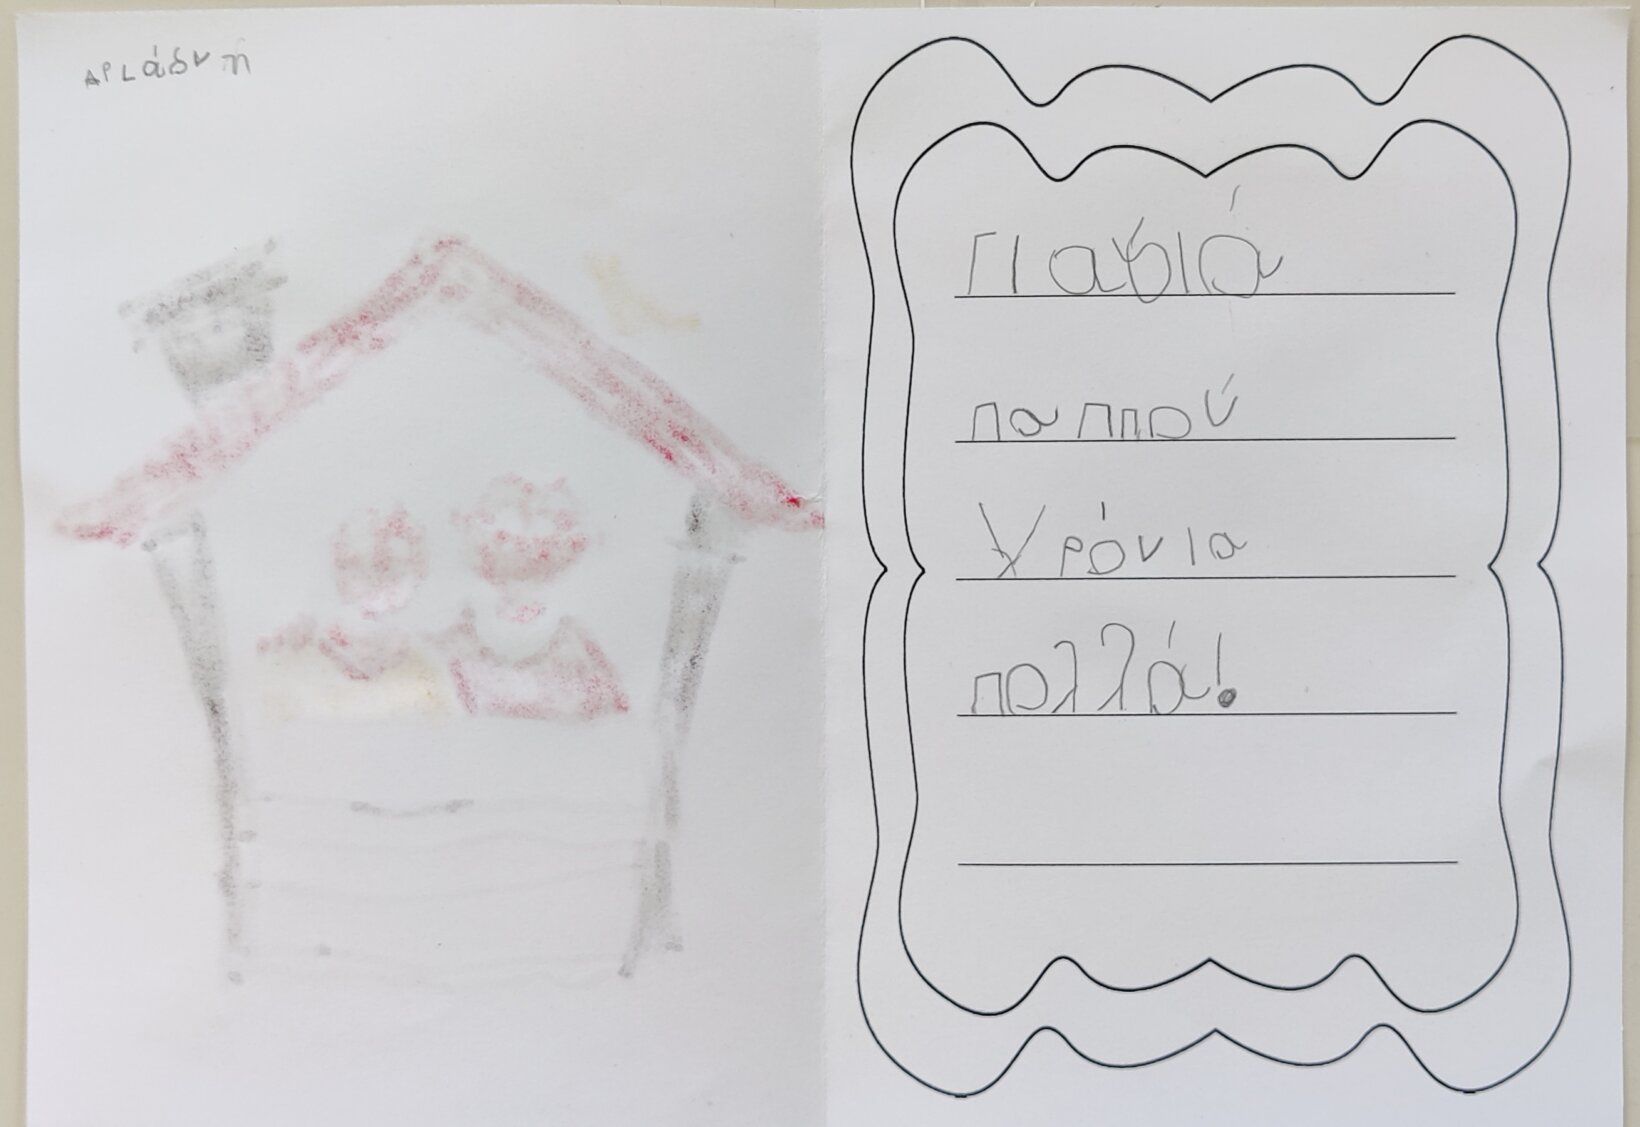 Αριάδνη
Γιαγιά
παππού
Χρόνια
πολλά!